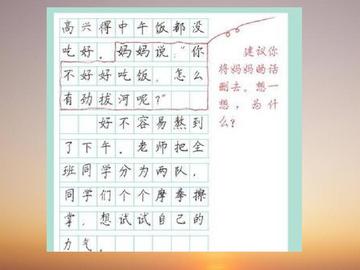 高兴得中午饭都没
吃好。妈妈说：“你
不好好吃饭，怎么
有劲拔河呢？”
好不容易熬到
了下午。老师把全
班同学分为两队，
同学们个个摩拳擦
掌，想试试自己的
力气。
建议你
将妈妈的话
删去。想一
想，为什
么？